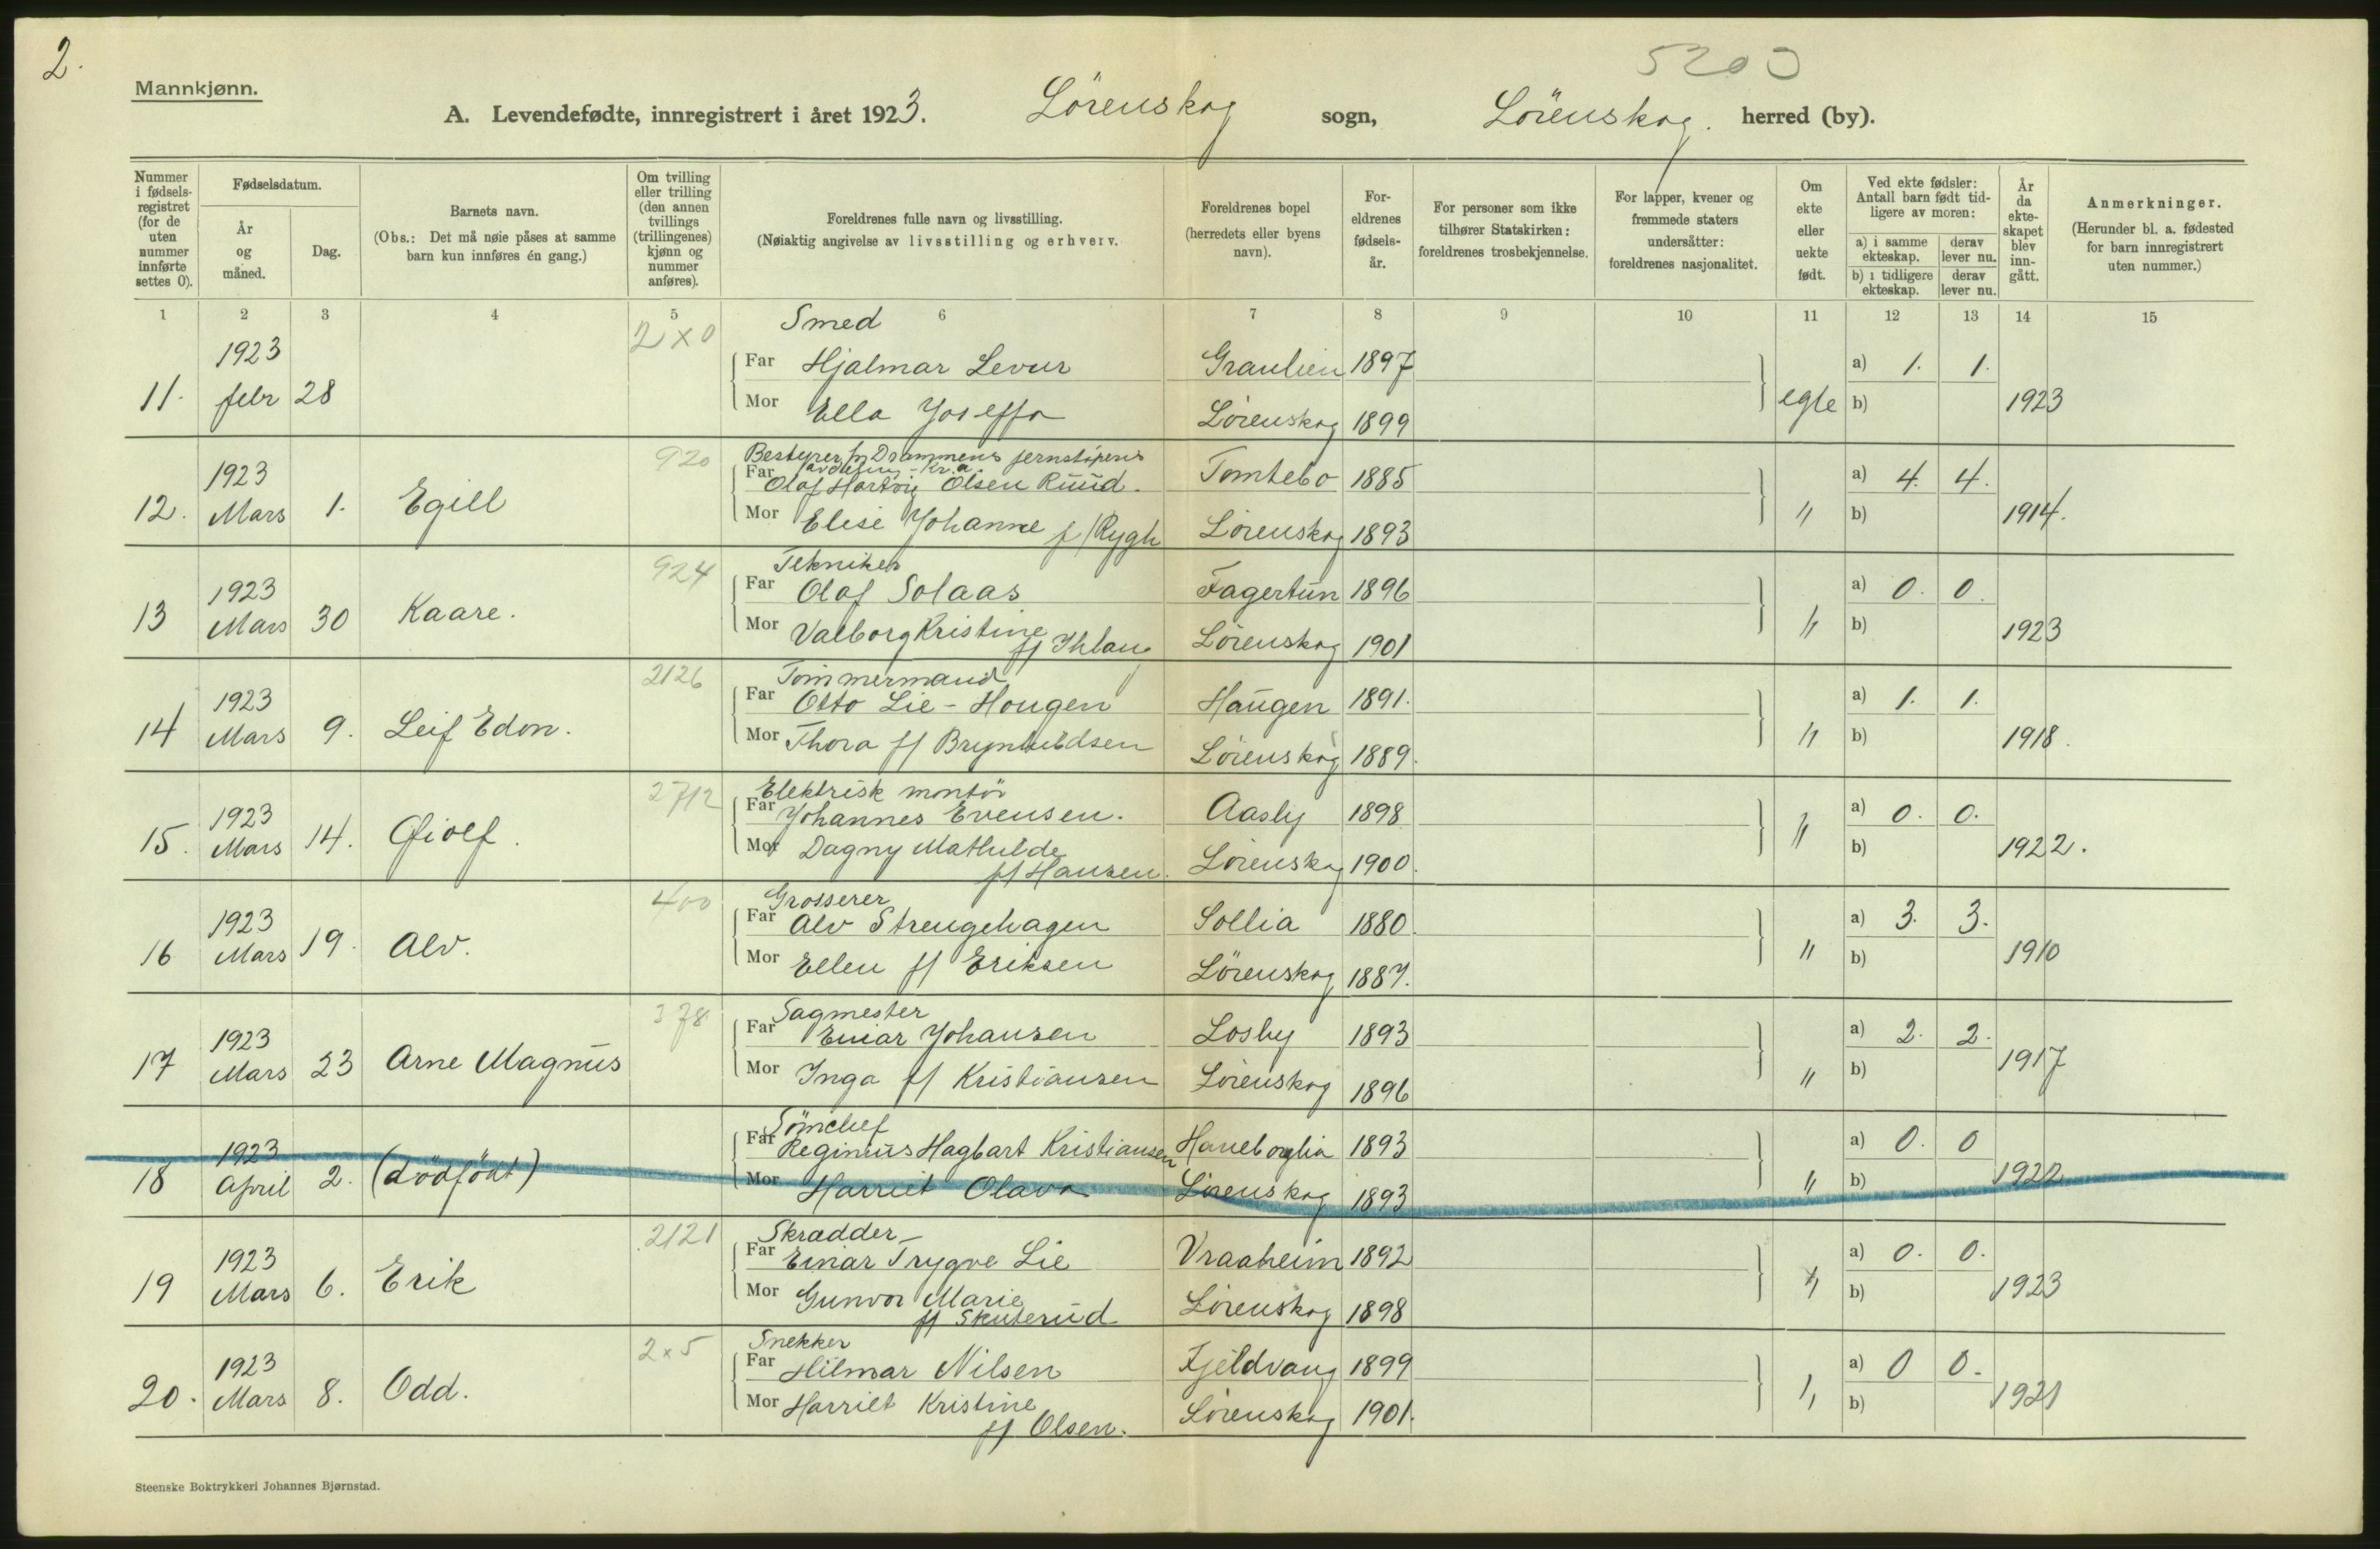 2.
5200
Mannkjønn.
A. Levendefødte, innregistrert i året 1923. Lörenskog sogn, Lörenskog. herred (by).
Nummer i fødsels-registret (for de uten nummer innførte settes 0).
Fødselsdatum.
År og måned.
Dag.
Barnets navn.
(Obs.: Det må nøie påses at samme barn kun innføres én gang.)
Om tvilling eller trilling (den annen tvillings (trillingenes) kjønn og nummer anføres).
Foreldrenes fulle navn og livsstilling.
(Nøiaktig angivelse av livsstilling og erhverv.
Foreldrenes bopel (herredets eller byens navn).
For-eldrenes fødsels-år.
For personer som ikke tilhører Statskirken: foreldrenes trosbekjennelse.
For lapper, kvener og fremmede staters undersåtter: foreldrenes nasjonalitet.
Om ekte eller uekte født.
Ved ekte fødsler: Antall barn født tid-ligere av moren:
a) i samme ekteskap. derav lever nu.
b) i tidligere ekteskap. derav lever nu.
År da ekte-skapet blev inn-gått.
Anmerkninger.
(Herunder bl. a. fødested for barn innregistrert uten nummer.)
1 2 3 4 5 6 7 8 9 10 11 12 13 14 15
2x0 Smed
1923 Far Hjalmar Levur Graulien 1897 a) 1. 1.
11. febr 28 Mor Ella Joseffa Lörenskog 1899 egte b) 1923
920 Bestyrer fr Drammens jernstöperis
avdeling - Kr.a.
1923 Far Olaf Hartvig Olsen Ruud. Tomtebo 1885 a) 4. 4.
12. Mars 1. Egill Mor Elise Johanne f/ Rygh Lörenskog 1893 " b) 1914.
924 Tekniker
1923 Far Olaf Solaas Fagertun 1896 a) 0. 0.
13 Mars 30 Kaare. Mor Valborg Kristine Lörenskog 1901 " b) 1923
f/ Ihlan
2126 Tömmermand
1923 Far Otto Lie-Hougen Haugen 1891. a) 1. 1.
14 Mars 9. Leif Edon. Mor Thora f/ Brynhildsen Lörenskog 1889. " b) 1918.
2712 Elektrisk montör
1923 Far Johannes Evensen. Aasly 1898 a) 0. 0.
15. Mars 14. Mor Dagny Mathilde Lörenskog 1900. " b) 1922.
f/ Hansen.
400 Grosserer
1923 Far Alv Strengehagen Sollia 1880. a) 3. 3.
16 Mars 19. Alv. Mor Ellen f/ Eriksen Lörenskog 1887. " b) 1910
378 Sagmester
1923 Far Einar Johansen Losby 1893 a) 2. 2.
17 Mars 23 Arne Magnus Mor Inga f/ Kristiansen Lörenskog 1896 " b) 1917
1923 Far Reginius Hagbart Kristiansen Haneborglia 1893 a) 0. 0
18 April 2. (dödfödt) Mor Harriet Olava Lörenskog 1893 " b) 1922
2121 Skrædder
1923 Far Einar Trygve Lie Vraaheim 1892 a) 0. 0.
19 Mars 6. Erik Mor Gunvor Marie Lörenskog 1898 " b) 1923
f/ Skuterud
2x5 Snekker
1923 Far Hilmar Nilsen Fjeldvang 1899 a) 0 0.
20. Mars 8. Odd. Mor Harriet Kristine Lörenskog 1901. " b) 1921
f/ Olsen.
Steenske Boktrykkeri Johannes Bjørnstad.